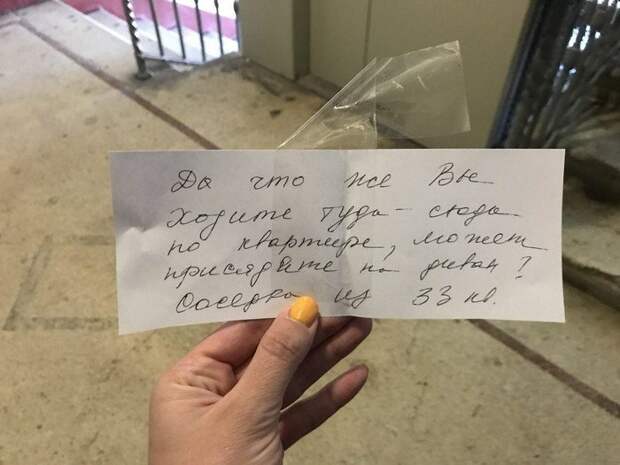 Да что же Вы
Ходите туда-сюда
по квартире, может
присядете на диван?
Соседка из 33 кв.